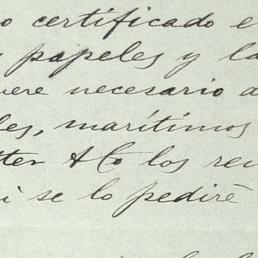 o certificado e
papeles y la
ere necesario a
les, marítimos
tter & Co los rem
i se lo pediré